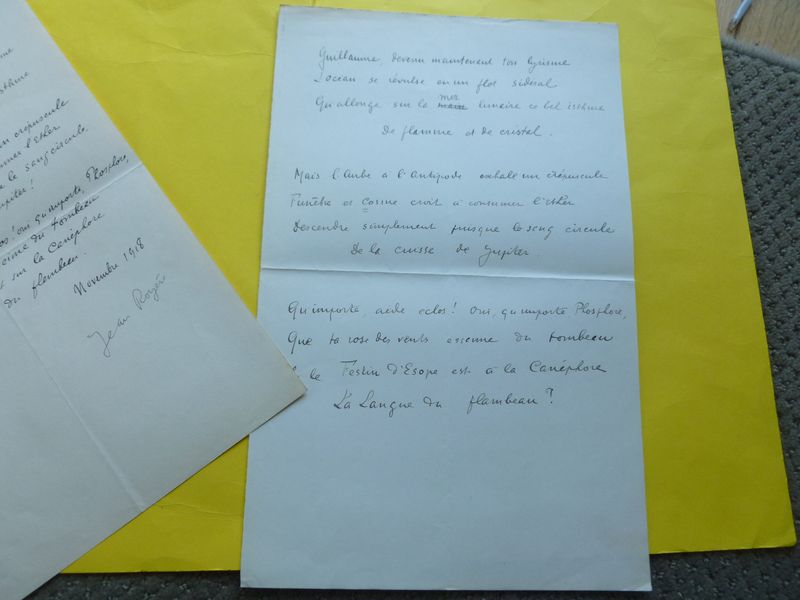 me
isthme
crépuscule
mer l'Ether
le sang circule
Jupiter!
os! oui qu'importe, Phosphore,
du tombeau
t sur la Canéphore
du flambeau.
Novembre 1918
Jean Royère
Guillaume, devenu maintenant ton lyrisme
L'océan se révulse en un flot sidéral
Qu'allonge sur la mer lunaire ce bel isthme
De flamme et de cristal.
Mais l'Aube à l'Antipode exhale un crépuscule
Funèbre et Cosme croit à consumer l'Ether
Descendre simplement puisque le sang circule
De la cuisse de Jupiter.
Qu'importe, aede eclos! Oui, qu'importe Phosphore,
Que ta rose des vents essenne du tombeau
le Festin d'Esope est à la Canéphore
La Langue du flambeau?